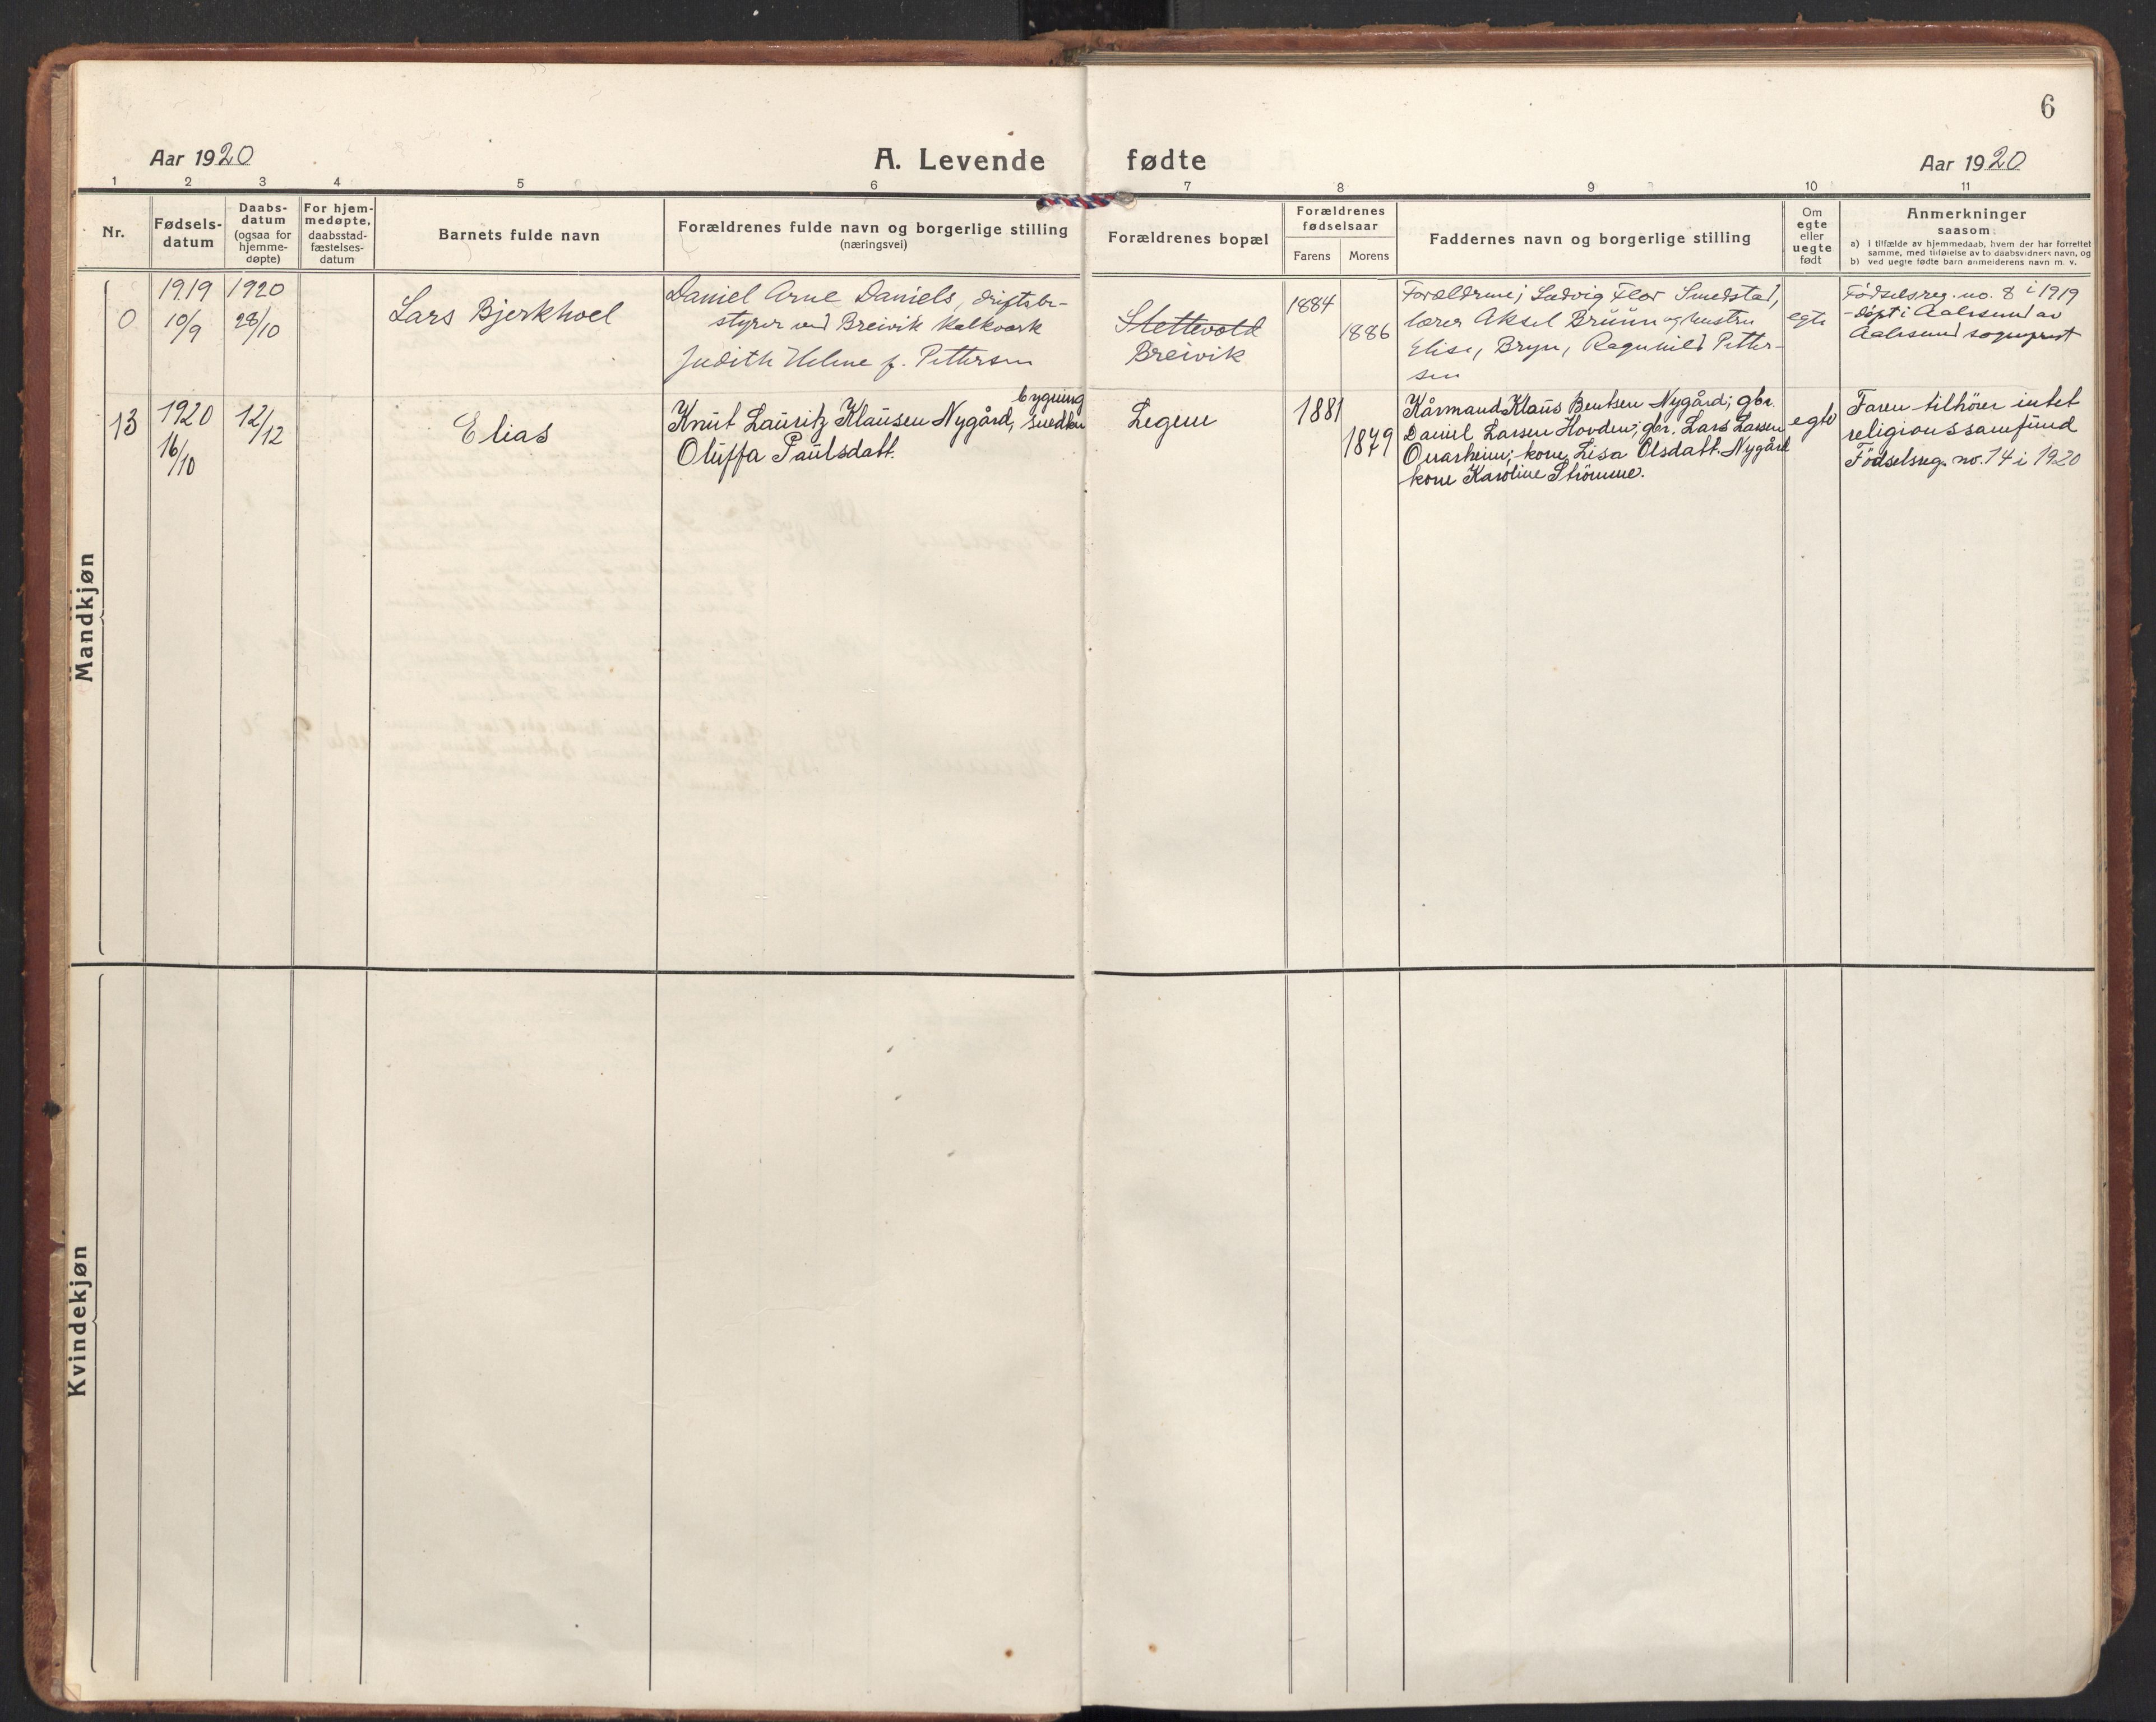 6
Aar 1920
A. Levende fødte
Aar 1920
1 2 3 4 5 6 7 8 9 10 11
Nr.
Fødsels-
datum
Daabs-
datum
(ogsaa for
hjemme-
døpte)
For hjem-
medøpte,
daabsstad-
fæstelses-
datum
Barnets fulde navn
Forældrenes fulde navn og borgerlige stilling
(næringsvei)
Forældrenes bopæl
Forældrenes
fødselsaar
Farens
Morens
Faddernes navn og borgerlige stilling
Om
egte
eller
uegte
født
Anmerkninger
saasom:
a) i tilfælde av hjemmedaab, hvem der har forrettet
samme, med tilføielse av to daabsvidners navn, og
b) ved uegte fødte barn anmelderens navn m. v.
Mandkjøn
0
1919
10/9
1920
28/10
Lars Bjerkhoel
Daniel Arne Daniels, driftsbe-
styrer ved Breivik kalkværk
Judith Helene f. Pettersen
Slettevold
Breivik
1884
1886
Forældrene; Ludvig Flor Smedstad,
lærer Aksel Bruun og hustru
Elise, Bryn, Ragnhild Petter-
sen
egte
Fødselsreg. no. 8 i 1919
- døpt i Aalesund av
Aalesund sogneprest
13
1920
16/10
12/12
Elias
Knut Lauritz Klausen Nygård, bygning
snedker
Oluffa Paulsdatt.
Legene
1881
1879
Kårmand Klaus Bentsen Nygård; gbr.
Daniel Larsen Hovden; gbr. Lars Larsen
Ovarheim; kone Lisa Olsdatt. Nygård
kone Karoline Strömme.
egte
Faren tilhörer intet
religionssamfund
Födselsreg. no. 14 i 1920
Kvindekjøn